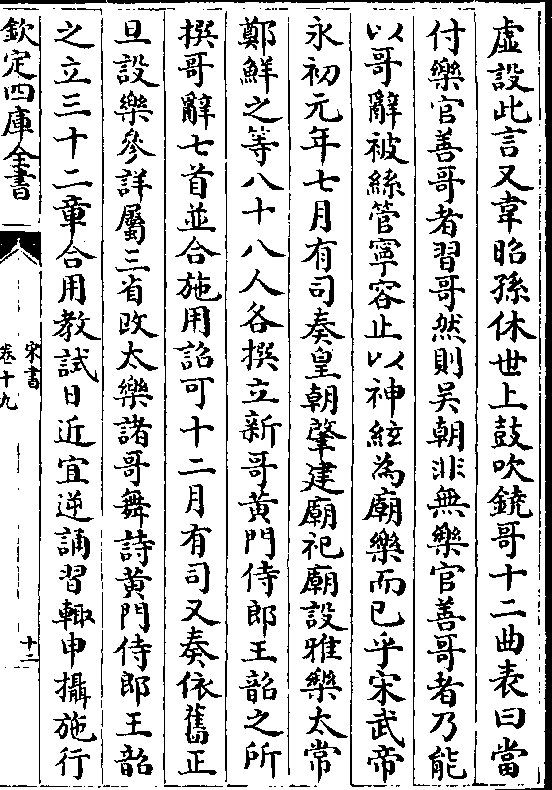 虛設此言又韋昭孫休世上鼓吹鐃哥十二曲表曰當
付樂官善哥者習哥然則吳朝非無樂官善哥者乃能
以哥辭被絲管寧容止以神絃為廟樂而已乎宋武帝
永初元年七月有司奏皇朝肇建廟祀廟設雅樂太常
鄭鮮之等八十八人各撰立新哥黃門侍郎王韶之所
撰哥辭七首並合施用詔可十二月有司又奏依舊正
旦設樂參詳屬三省改太樂諸哥舞詩黃門侍郎王韶
之立三十二章合用教試日近宜逆誦習輙申攝施行
欽定四庫全書
宋書
卷十九
十二